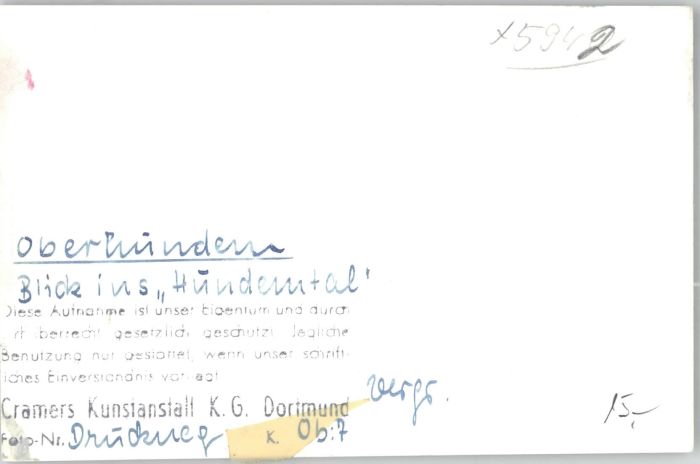 x5942
Oberhundem
Blick ins „Hundemtal"
Diese Aufnahme ist unser Eigentum und durch
Urheberrecht gesetzlich geschützt. Jegliche
Benutzung nur gestattet, wenn unser schrift-
liches Einverständnis vorliegt
Cramers Kunstanstalt K.G. Dortmund
vergr.
Foto-Nr. Druckneg K. Ob:7
15,-